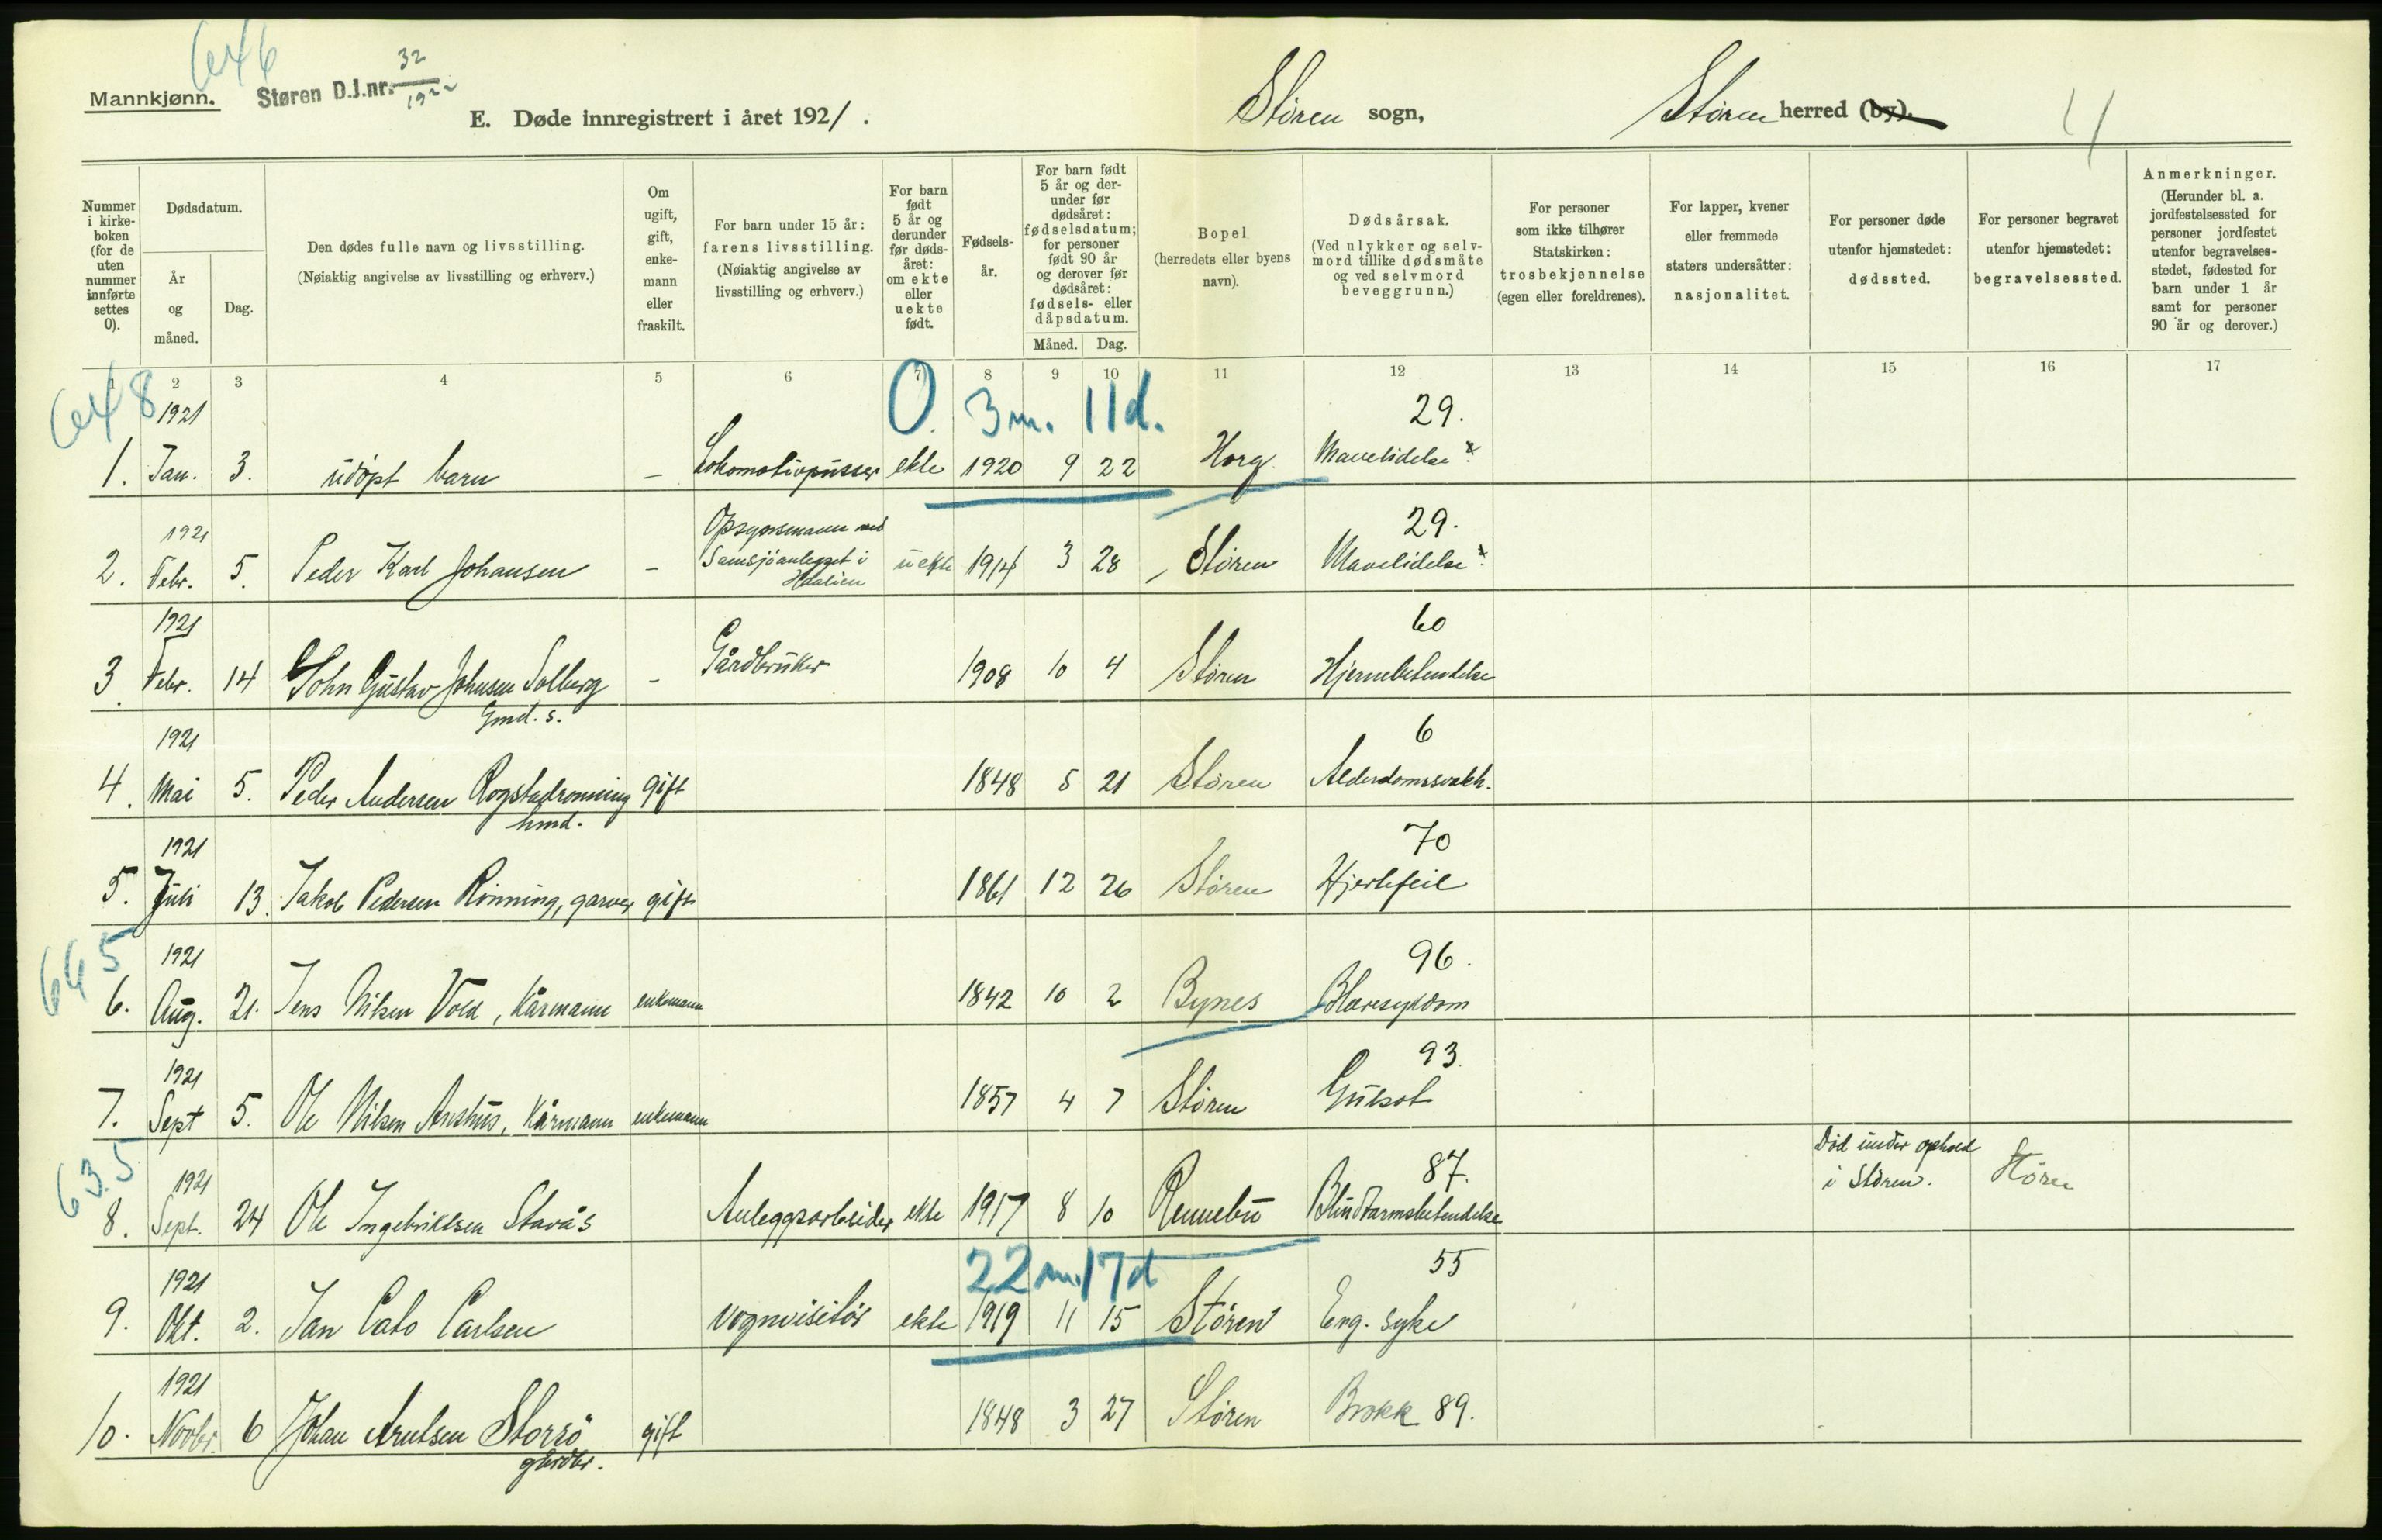 646
Mannkjønn. Støren D.J.nr. 32/1922
E. Døde innregistrert i året 1921. Støren sogn, Støren herred (by). 4
Nummer i kirke-boken (for de uten nummer innførte settes 0).
Dødsdatum.
År og måned.
Dag.
Den dødes fulle navn og livsstilling.
(Nøiaktig angivelse av livsstilling og erhverv.)
Om ugift, gift, enke-mann eller fraskilt.
For barn under 15 år: farens livsstilling. (Nøiaktig angivelse av livsstilling og erhverv.)
For barn født 5 år og derunder før døds-året: om ekte eller uekte født.
Fødsels-år.
For barn født 5 år og der-under før dødsåret: fødselsdatum; for personer født 90 år og derover før dødsåret: fødsels- eller dåpsdatum.
Måned. Dag.
Bopel (herredets eller byens navn).
Dødsårsak.
(Ved ulykker og selv-mord tillike dødsmåte og ved selvmord beveggrunn.)
For personer som ikke tilhører Statskirken: trosbekjennelse (egen eller foreldrenes).
For lapper, kvener eller fremmede staters undersåtter: nasjonalitet.
For personer døde utenfor hjemstedet: dødssted.
For personer begravet utenfor hjemstedet: begravelsessted.
Anmerkninger.
(Herunder bl. a. jordfestelsessted for personer jordfestet utenfor begravelses-stedet, fødested for barn under 1 år samt for personer 90 år og derover.)
1 2 3 4 5 6 7 8 9 10 11 12 13 14 15 16 17
648 1921 0. 3 m. 11 d. 29.
1. Jan. 3. udøpt barn – Lokomotivpusser ekte 1920 9 22 Horg Mavelidelse
1921 Opsynsmann ved 29.
2. Febr. 5. Peder Karl Johansen – Samsjøanlegget i uekte 1914 3 28 Støren Mavelidelse
1921 60
3. Febr. 14 John Gustav Johnsen Solberg – Gårdbruker 1908 10 4 Støren Hjernebetendelse
Gmd. s.
1921 6
4. Mai 5. Peder Andersen Rogstadrønning gift 1848 5 21 Støren Alderdomssvakh.
hmd.
1921 70
5. Juli 13. Jakob Pedersen Rønning, garver gift 1861 12 26 Støren Hjertefeil
645 1921 96.
6. Aug. 21. Jens Nilsen Vold, Kårmann enkemann 1842 10 2 Bynes Blæresykdom
1921 93.
7. Sept 5. Ole Nilsen Anshus, Kårmann enkemann 1857 4 7 Støren Gulsot
635 1921 87. Død under ophold i Støren. Støren
8. Sept. 24 Ole Ingebriktsen Stavås Anleggsarbeider ekte 1917 8 10 Rennebu Blindtarmsbetendelse
1921 22 m. 17 d 55
9. Okt. 2. Jan Cato Carlsen vognvisitør ekte 1919 11 15 Støren Eng. syke
1921
10. Novbr. 6 Johan Arntsen Storrø gift 1848 3 27 Støren Brokk 89.
gårdbr.